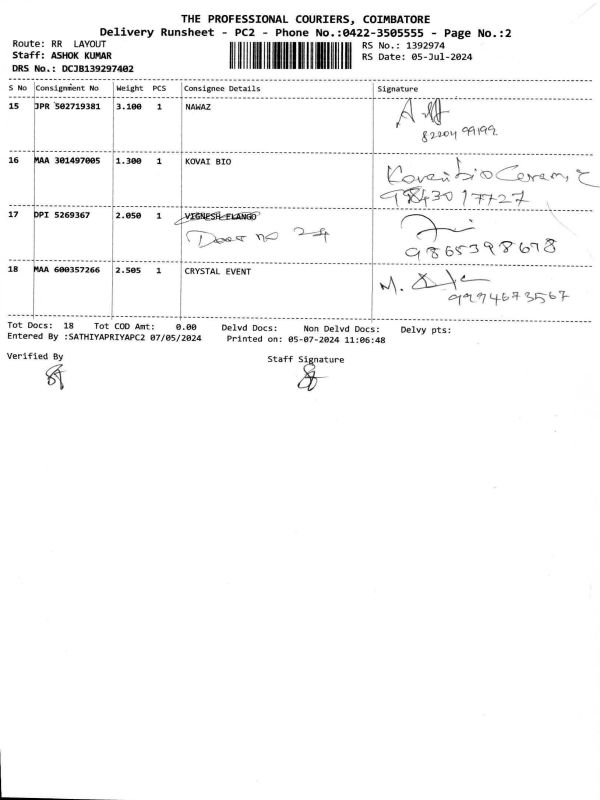 THE PROFESSIONAL COURIERS, COIMBATORE
Delivery Runsheet - PC2 - Phone No.:0422-3505555 - Page No.:2
Route: RR LAYOUT RS No.: 1392974
Staff: ASHOK KUMAR RS Date: 05-Jul-2024
DRS No.: DCJB139297402
S No Consignment No Weight PCS Consignee Details Signature
15 JPR 502719381 3.100 1 NAWAZ
82204 99199
16 MAA 301497005 1.300 1 KOVAI BIO Kovai bio Ceramic
98430 17727
17 DPI 5269367 2.050 1 VIGNESH ELANGO
Door no 24 9865398678
18 MAA 600357266 2.505 1 CRYSTAL EVENT M.
9994673567
Tot Docs: 18 Tot COD Amt: 0.00 Delvd Docs: Non Delvd Docs: Delvy pts:
Entered By :SATHIYAPRIYAPC2 07/05/2024 Printed on: 05-07-2024 11:06:48
Verified By Staff Signature